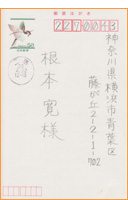 郵便はがき
227-0043
神奈川県横浜市青葉区
藤が丘2-2-1-702
根本寛様